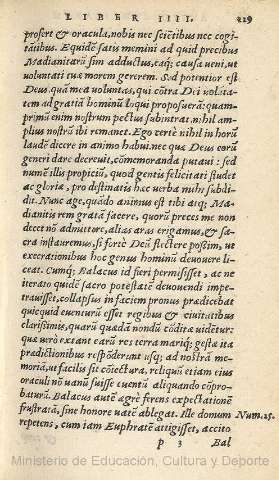 LIBER IIII. 229
profert & oracula, nobis nec sciẽtibus nec cogi-
tãtibus. Equidẽ satis memini ad quid precibus
Madianitarũ sim adductus, eaq; causa veni, ut
voluntati tuæ morem gererem. Sed potentior est
Deus quã mea voluntas, qui cõtra Dei volũta-
tem ad gratiã hominũ loqui proposuerã: quam-
primũ enim nostrum pectus subintrat, nihil am-
plius nostrũ ibi remanet. Ego certè nihil in horũ
laudẽ dicere in animo habui, nec qua Deus eorũ
generi dare decreuit, cõmemoranda putaui: sed
numẽ illis propiciũ, quod gentis felicitati studet
ac gloriæ, pro destinatis hæc verba mihi subdi-
dit. Nunc age, quãdo animus est tibi atq; Ma-
dianitis rem gratã facere, quorũ preces me non
decet nõ admittere, alias aras erigamus, & sa-
cra instauremus, si fortè Deũ flectere possim, ut
execrationibus hoc genus hominũ deuouere li-
ceat. Cumq; Balacus id fieri permisisset, ac ne
iterato quidẽ sacro potestatẽ deuouendi impe-
trauisset, collapsus in faciem pronus prædicebat
quicquid euenturũ esset regibus & ciuitatibus
clarissimis, quarũ quædã nondũ cõditæ uidẽtur:
quæ uerò extant earũ res terra mariq; gesta ita
prædictionibus respõderunt usq; ad nostrã me-
moriã, ut facilis sit cõiectura, reliquũ etiam eius
oraculi nõ uanũ fuisse euentũ aliquando cõpro-
baturũ. Balacus autẽ ægrè ferens expectationẽ
frustratã, sine honore uatẽ ablegat. Ille domum Num.25.
repetens, cum iam Euphratẽ attigisset, accito
p 3 Bal
Ministerio de Educación, Cultura y Deporte